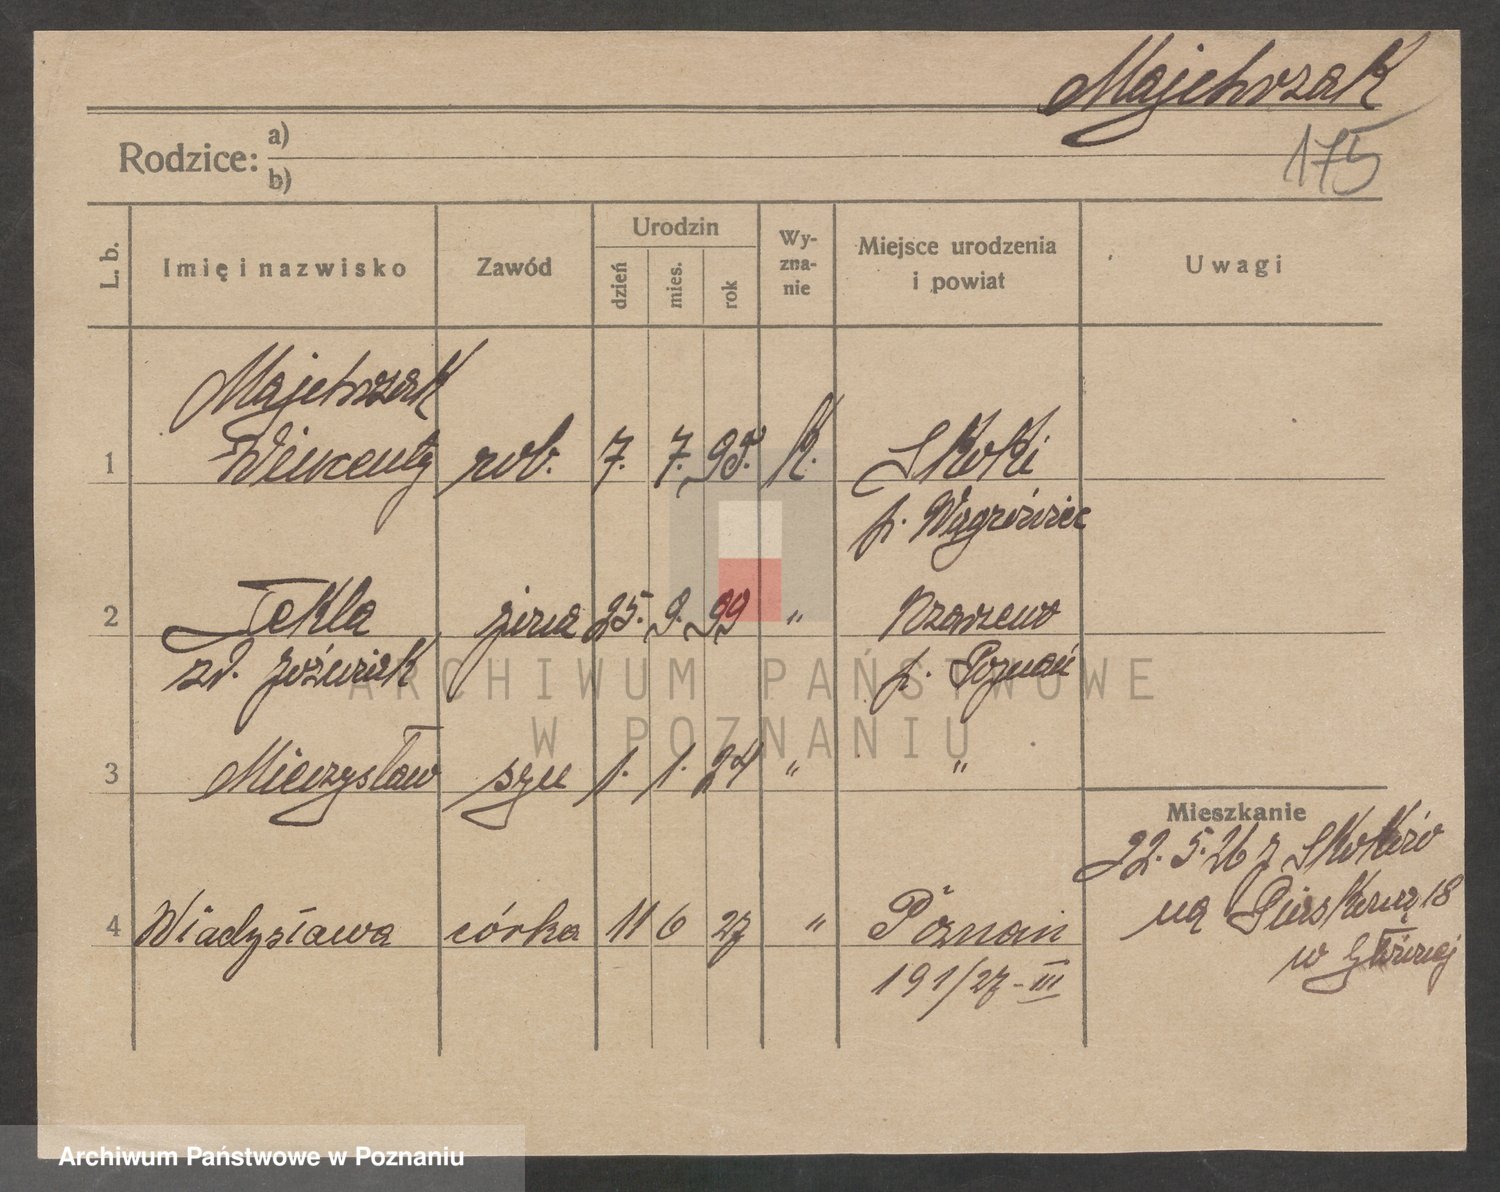 Majchrzak
175
Rodzice: a)
b)
L. b. Imię i nazwisko Zawód Urodzin dzień mies. rok Wy-zna-nie Miejsce urodzenia i powiat Uwagi
Majchrzak
1 Wincenty rob. 7. 7. 95. k. Skoki
p. Wągrówiec
2 Tekla żona 25. 9. 99 "
zd. p. Poznań
3 Mieczysław syn 1. 1. 24 " "
Mieszkanie
22. 5. 26 z Skoków
4 Władysława córka 11 6 27 " Poznań
na 18
191/27-III
w Głównej
ARCHIWUM PAŃSTWOWE
W POZNANIU
Archiwum Państwowe w Poznaniu